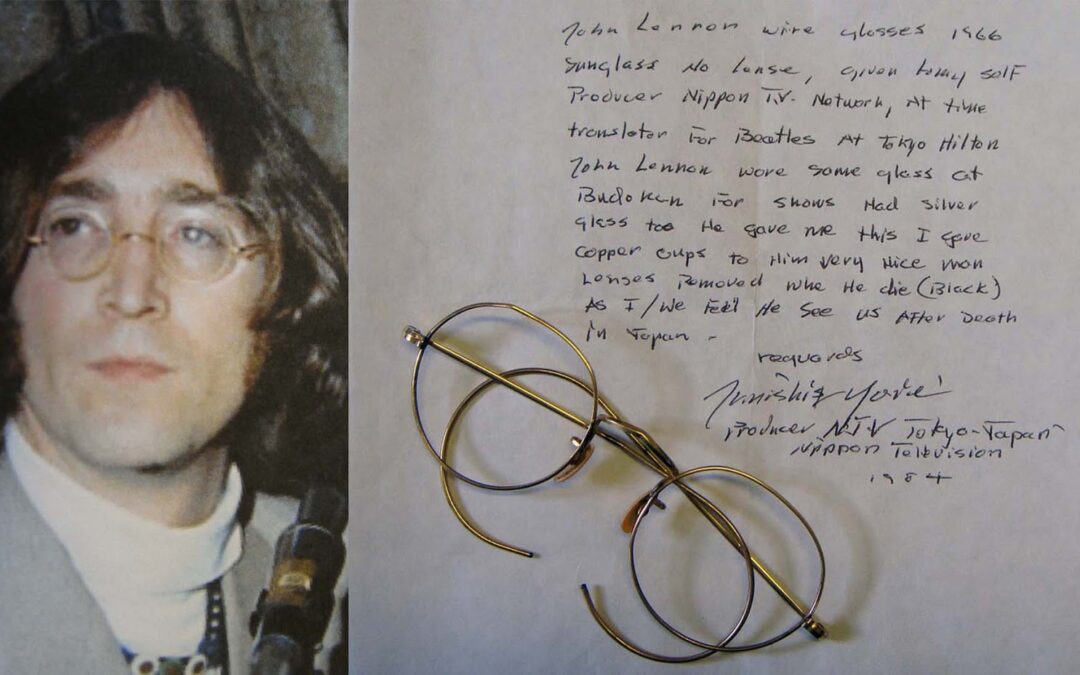 John Lennon wire glosses 1966
Sunglass No Lense, given to my self
Producer Nippon T.V. Network, At time
translator For Beatles At Tokyo Hilton
John Lennon wore some glass at
Budoken For shows Had silver
glass too He gave me this I gave
copper cups to Him very Nice man
Lenses Removed whe He die (Black)
As I/we Feel He See us After Death
in Japan -
reguards
Producer N.T.V Tokyo-Japan
Nippon Television
1984